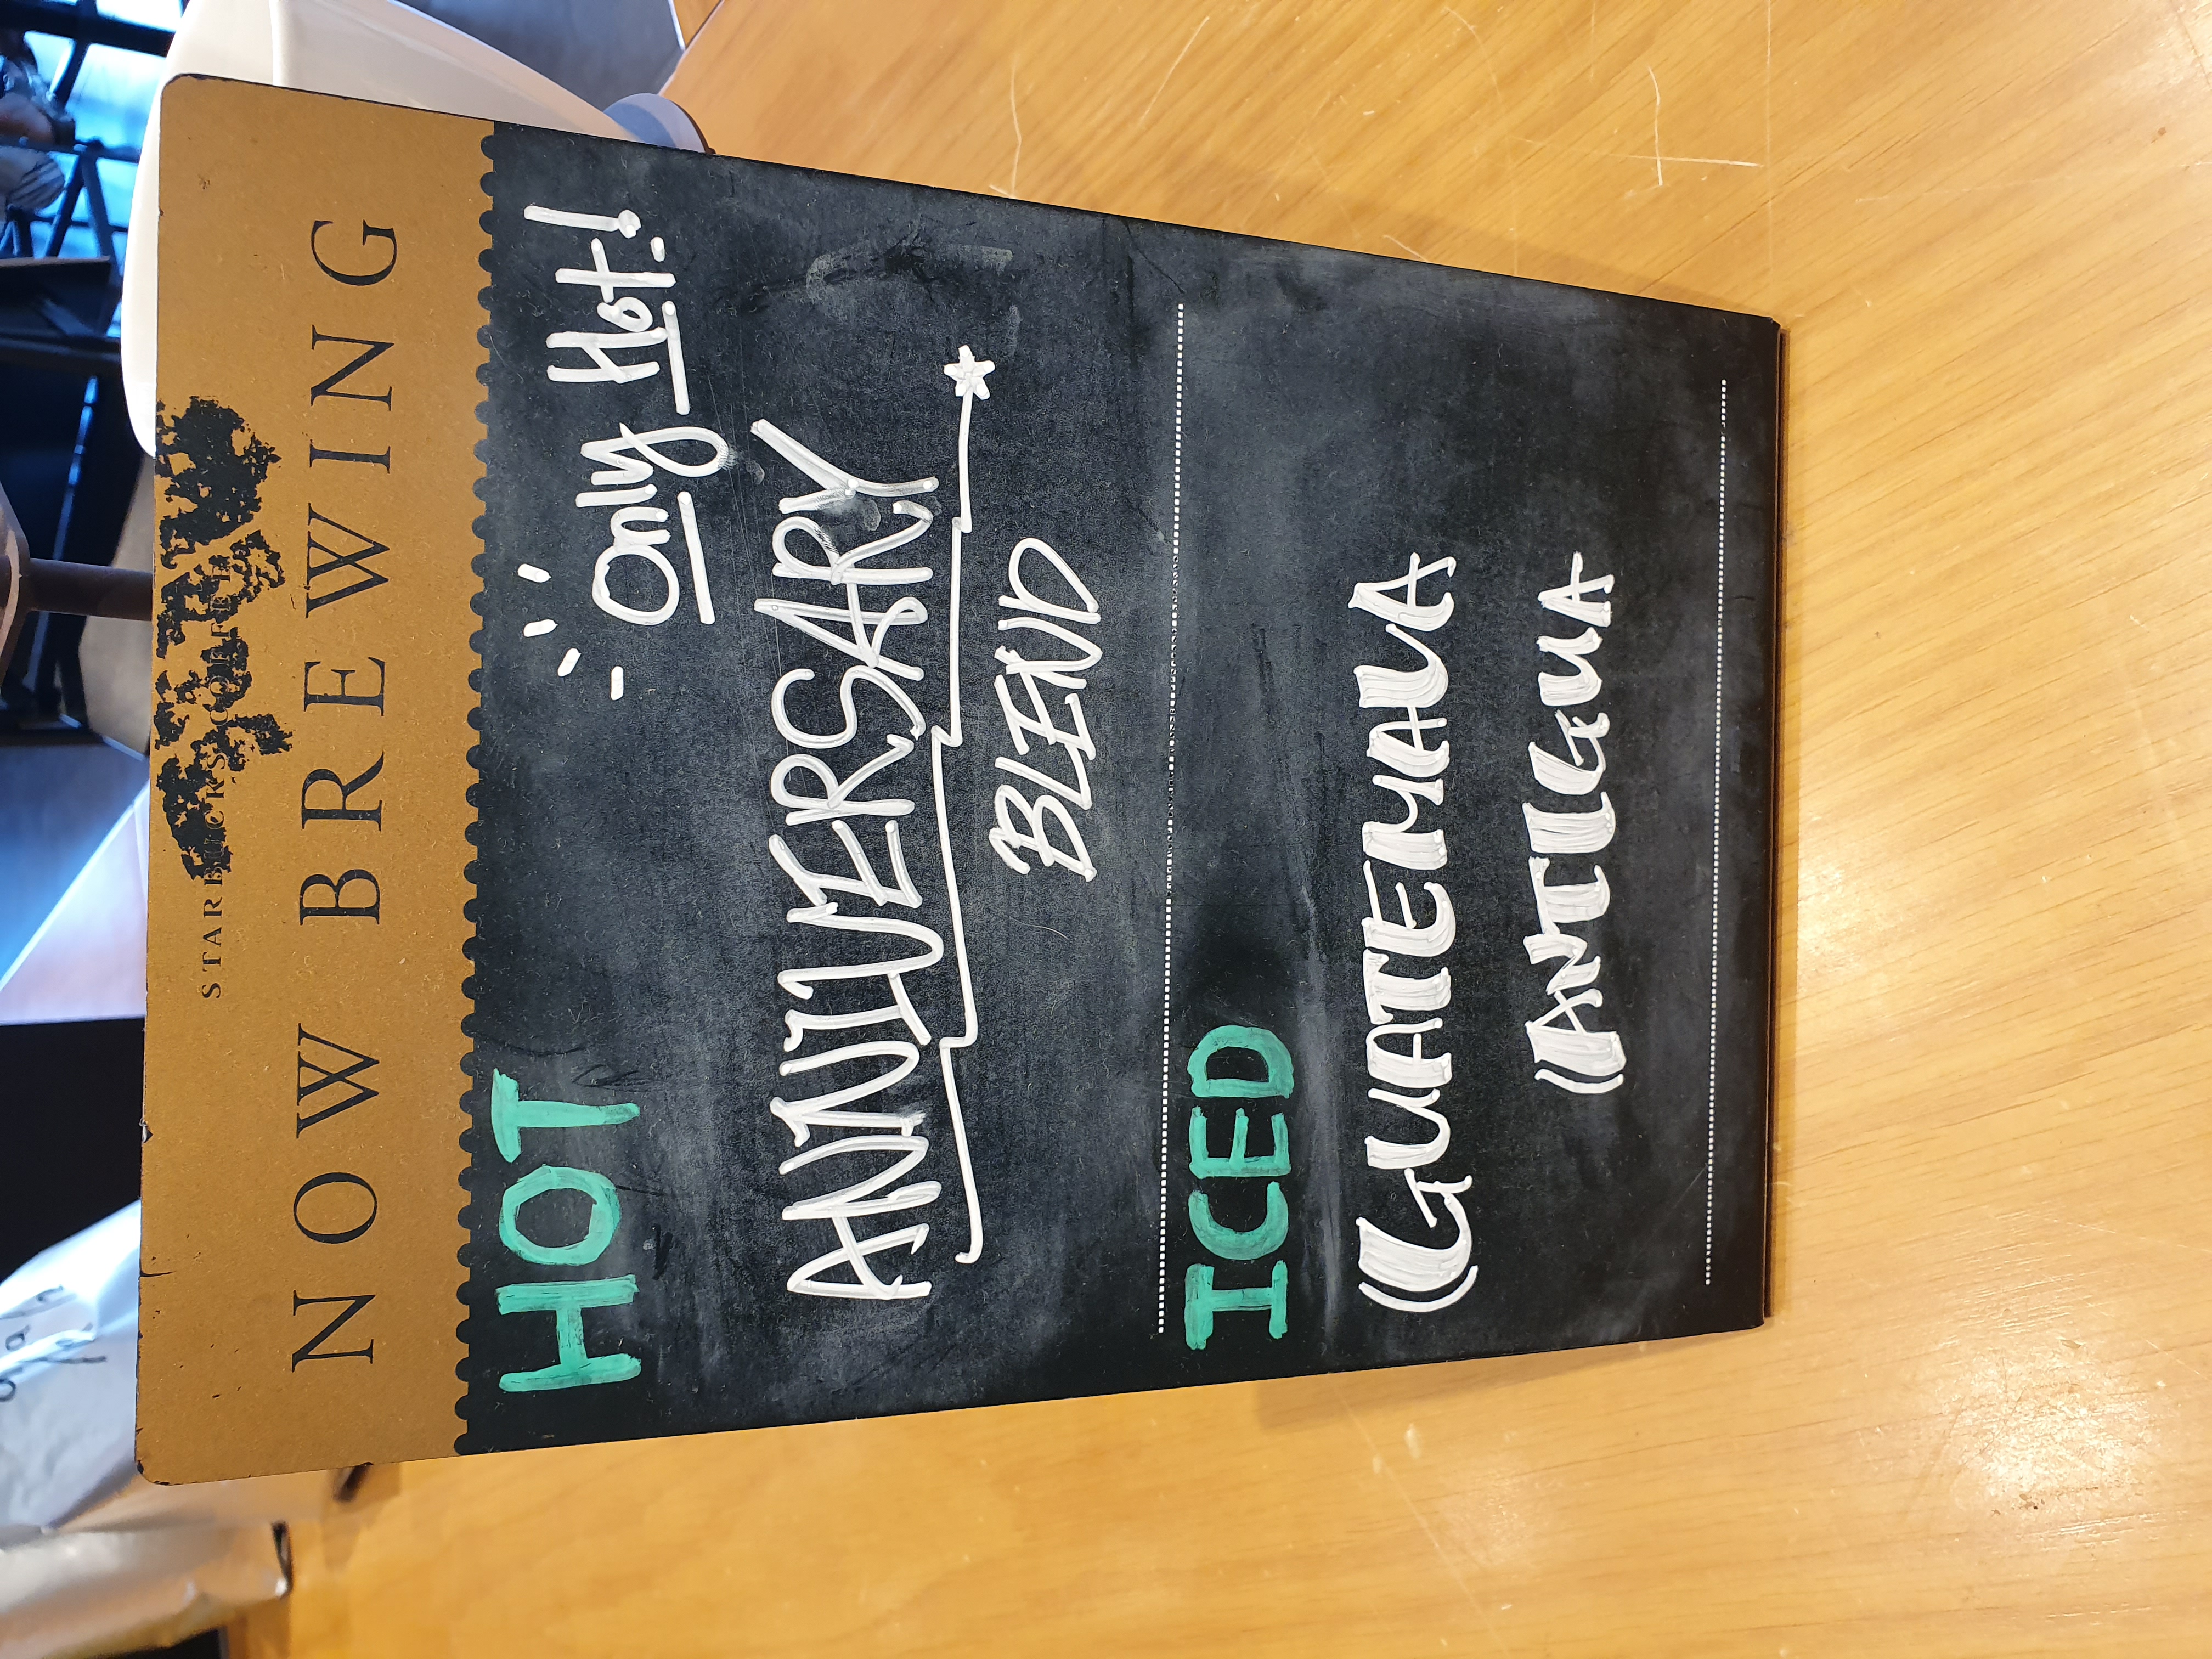 STARBUCKS COFFEE
NOW BREWING
HOT
Only Hot!
ANNIVERSARY
BLEND
ICED
GUATEMALA
ANTIGUA